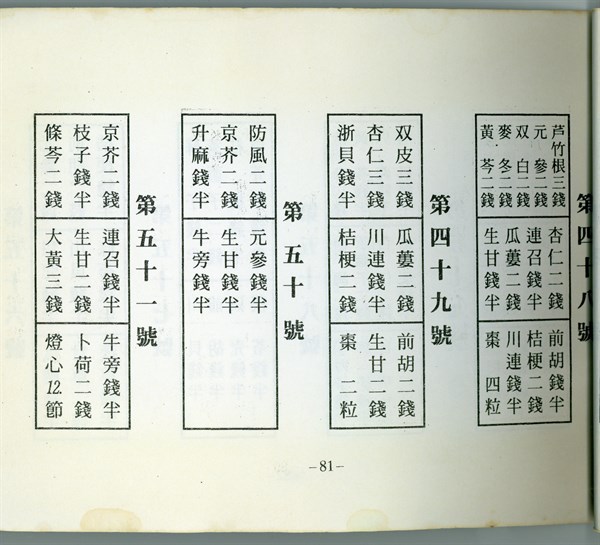 第四十八號
芦竹根三錢
元參二錢
双白二錢
麥冬二錢
黃芩二錢
杏仁二錢
連召錢半
瓜蔞二錢
生甘二錢
前胡錢半
桔梗二錢
川連錢半
棗四粒
第四十九號
双皮三錢
杏仁三錢
浙貝錢半
瓜蔞二錢
川連錢半
桔梗二錢
前胡二錢
生甘二錢
棗二粒
第五十號
防風二錢
京芥二錢
升麻錢半
元參錢半
生甘錢半
牛旁錢半
第五十一號
京芥二錢
枝子錢半
條芩二錢
連召錢半
生甘二錢
大黃三錢
牛旁錢半
卜荷二錢
燈心12.節
–81–